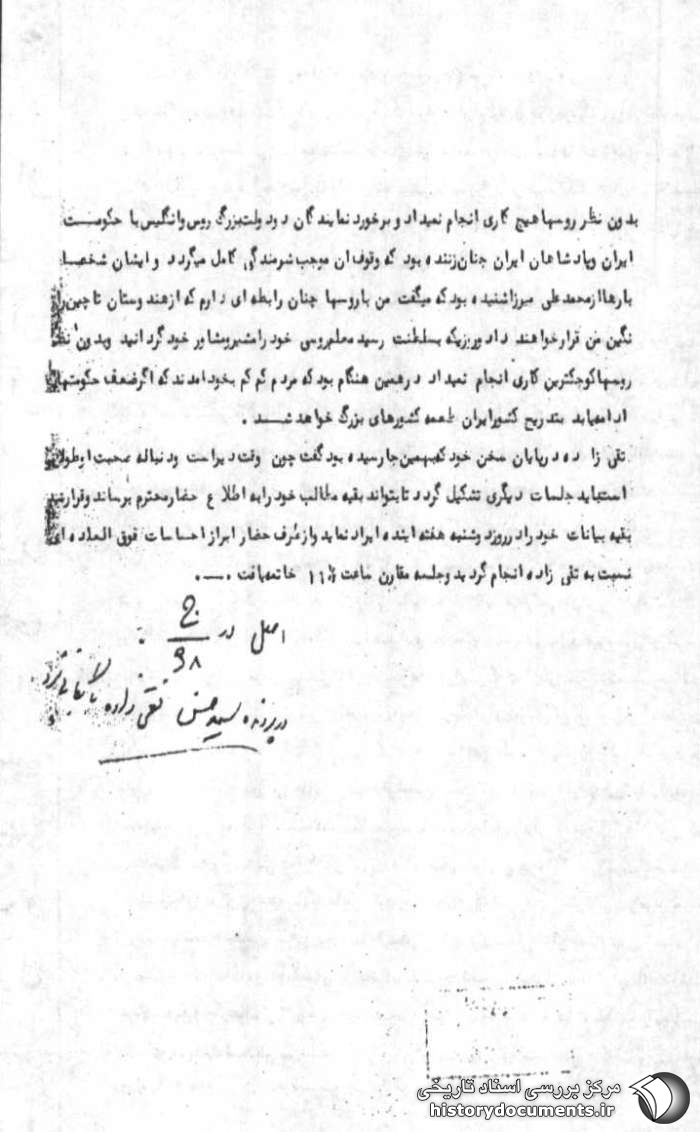 بدون نظر روسها هیچ کاری انجام نمیداد و برخورد نمایندگان دو دولت بزرگ روس وانگلیس با حکومت
ایران وپادشاهان ایران چنان زننده بود که وقوف ان موجب شرمندگی کامل میگردد و ایشان شخصا
بارها از محمد علی میرزا شنیده بود که میگفت من با روسها چنان رابطه ای دارم که از هند وستان تا چین را
نگین من قرار خواهند داد و روزیکه بسلطنت رسید معلم روسی خود را مشیر و مشاور خود گردانید وبدون نظر
روسها کوچکترین کاری انجام نمیداد در همین هنگام بود که مردم کم کم بخود امدند که اگر ضعف حکومتها
ادامه یابد بتدریج کشور ایران طعمه کشورهای بزرگ خواهد شد .
تقی زاده در پایان سخن خود که بهمین جا رسیده بود گفت چون وقت دیر است و دنباله صحبت او طولانی
است باید جلسات دیگری تشکیل گردد تا بتواند بقیه مطالب خود را به اطلاع حضار محترم برساند وقرار شد
بقیه بیانات خود را در روز دوشنبه هفته اینده ایراد نماید واز طرف حضار ابراز احساسات فوق العاده ای
نسبت به تقی زاده انجام گردید وجلسه مقارن ساعت ۱۱ خاتمه یافت .
اصل در
در پرونده سید حسن تقی زاده
مرکز بررسی اسناد تاریخی
historydocuments.ir